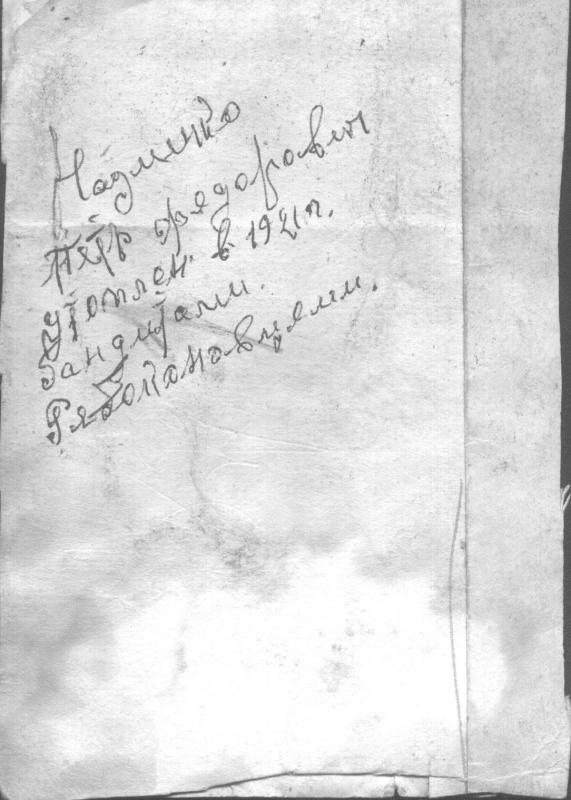 Надменко
Пётр Фядарович
утоплен в 1921 г.
бандитами.
Рябоконавцами.